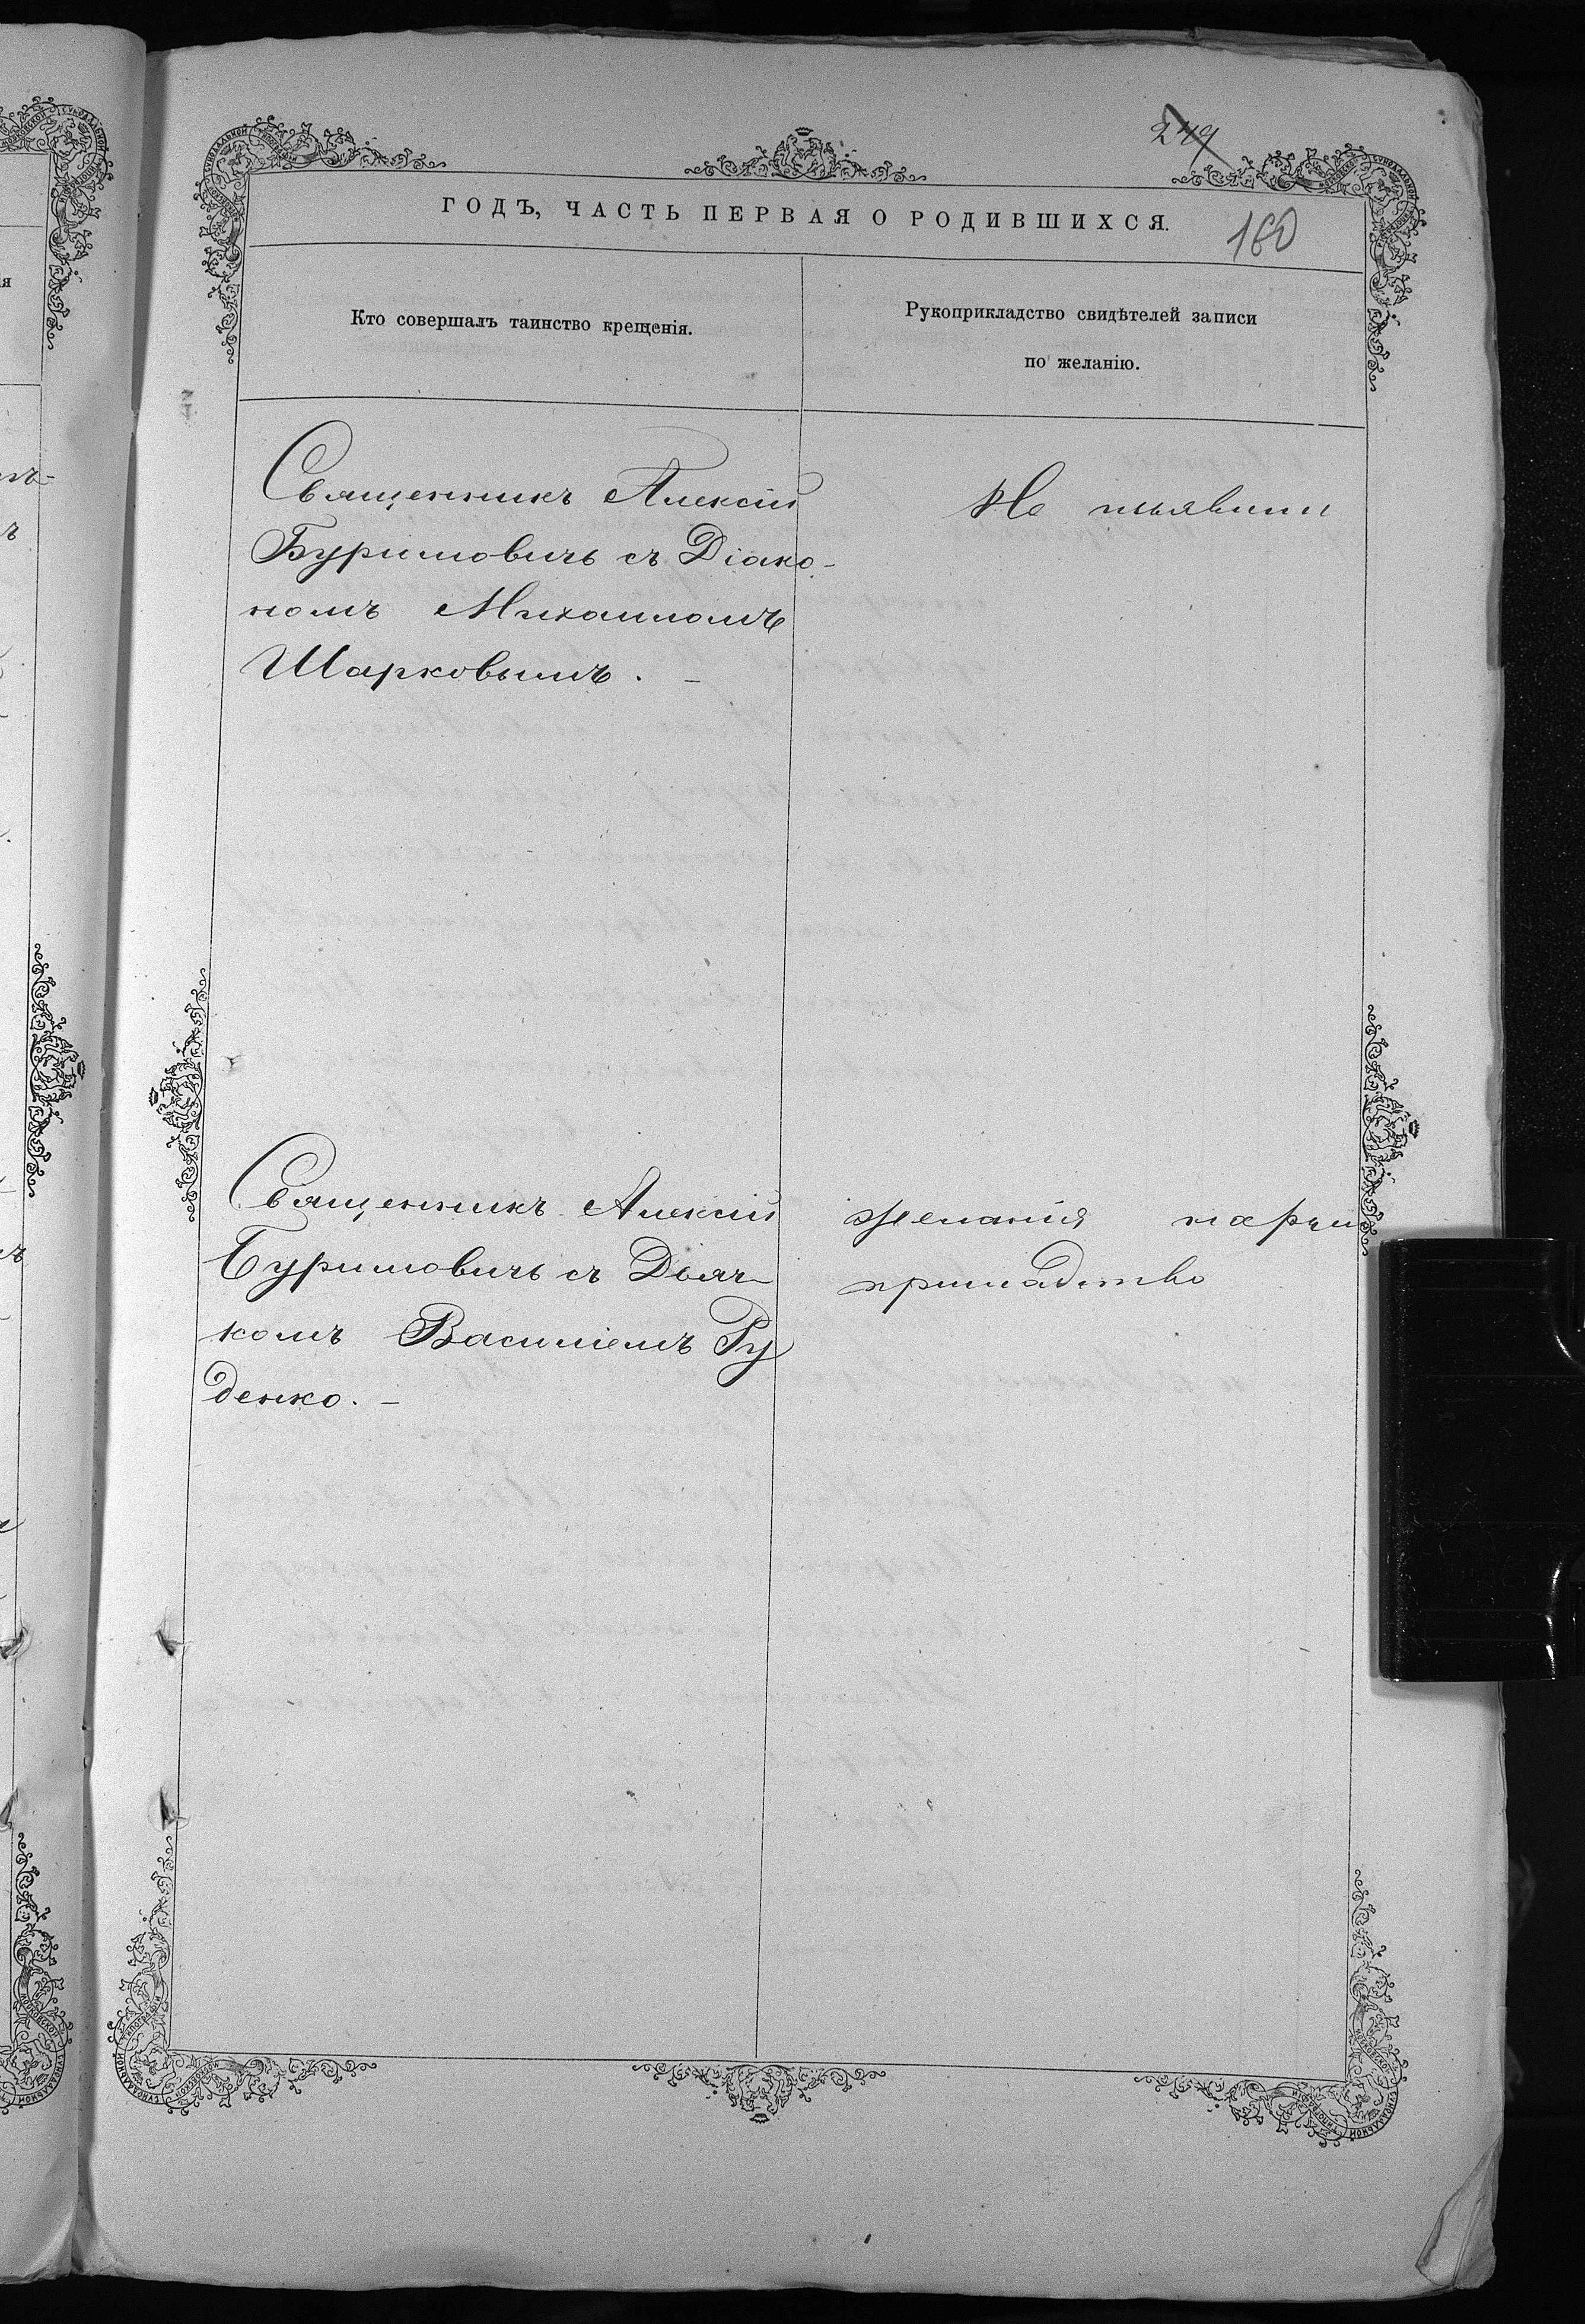 249
ГОДЪ, ЧАСТЬ ПЕРВАЯ О РОДИВШИХСЯ.
160
Кто совершалъ таинство крещенія.
Рукоприкладство свидѣтелей записи
по желанію.
Священникъ Алексій
Буримовичъ съ Діако-
номъ Михаиломъ
Шарковымъ. -
Не изъявили
Священникъ Алексій
Буримовичъ съ Дьяч-
комъ Василіемъ Ру
денко. -
желанія